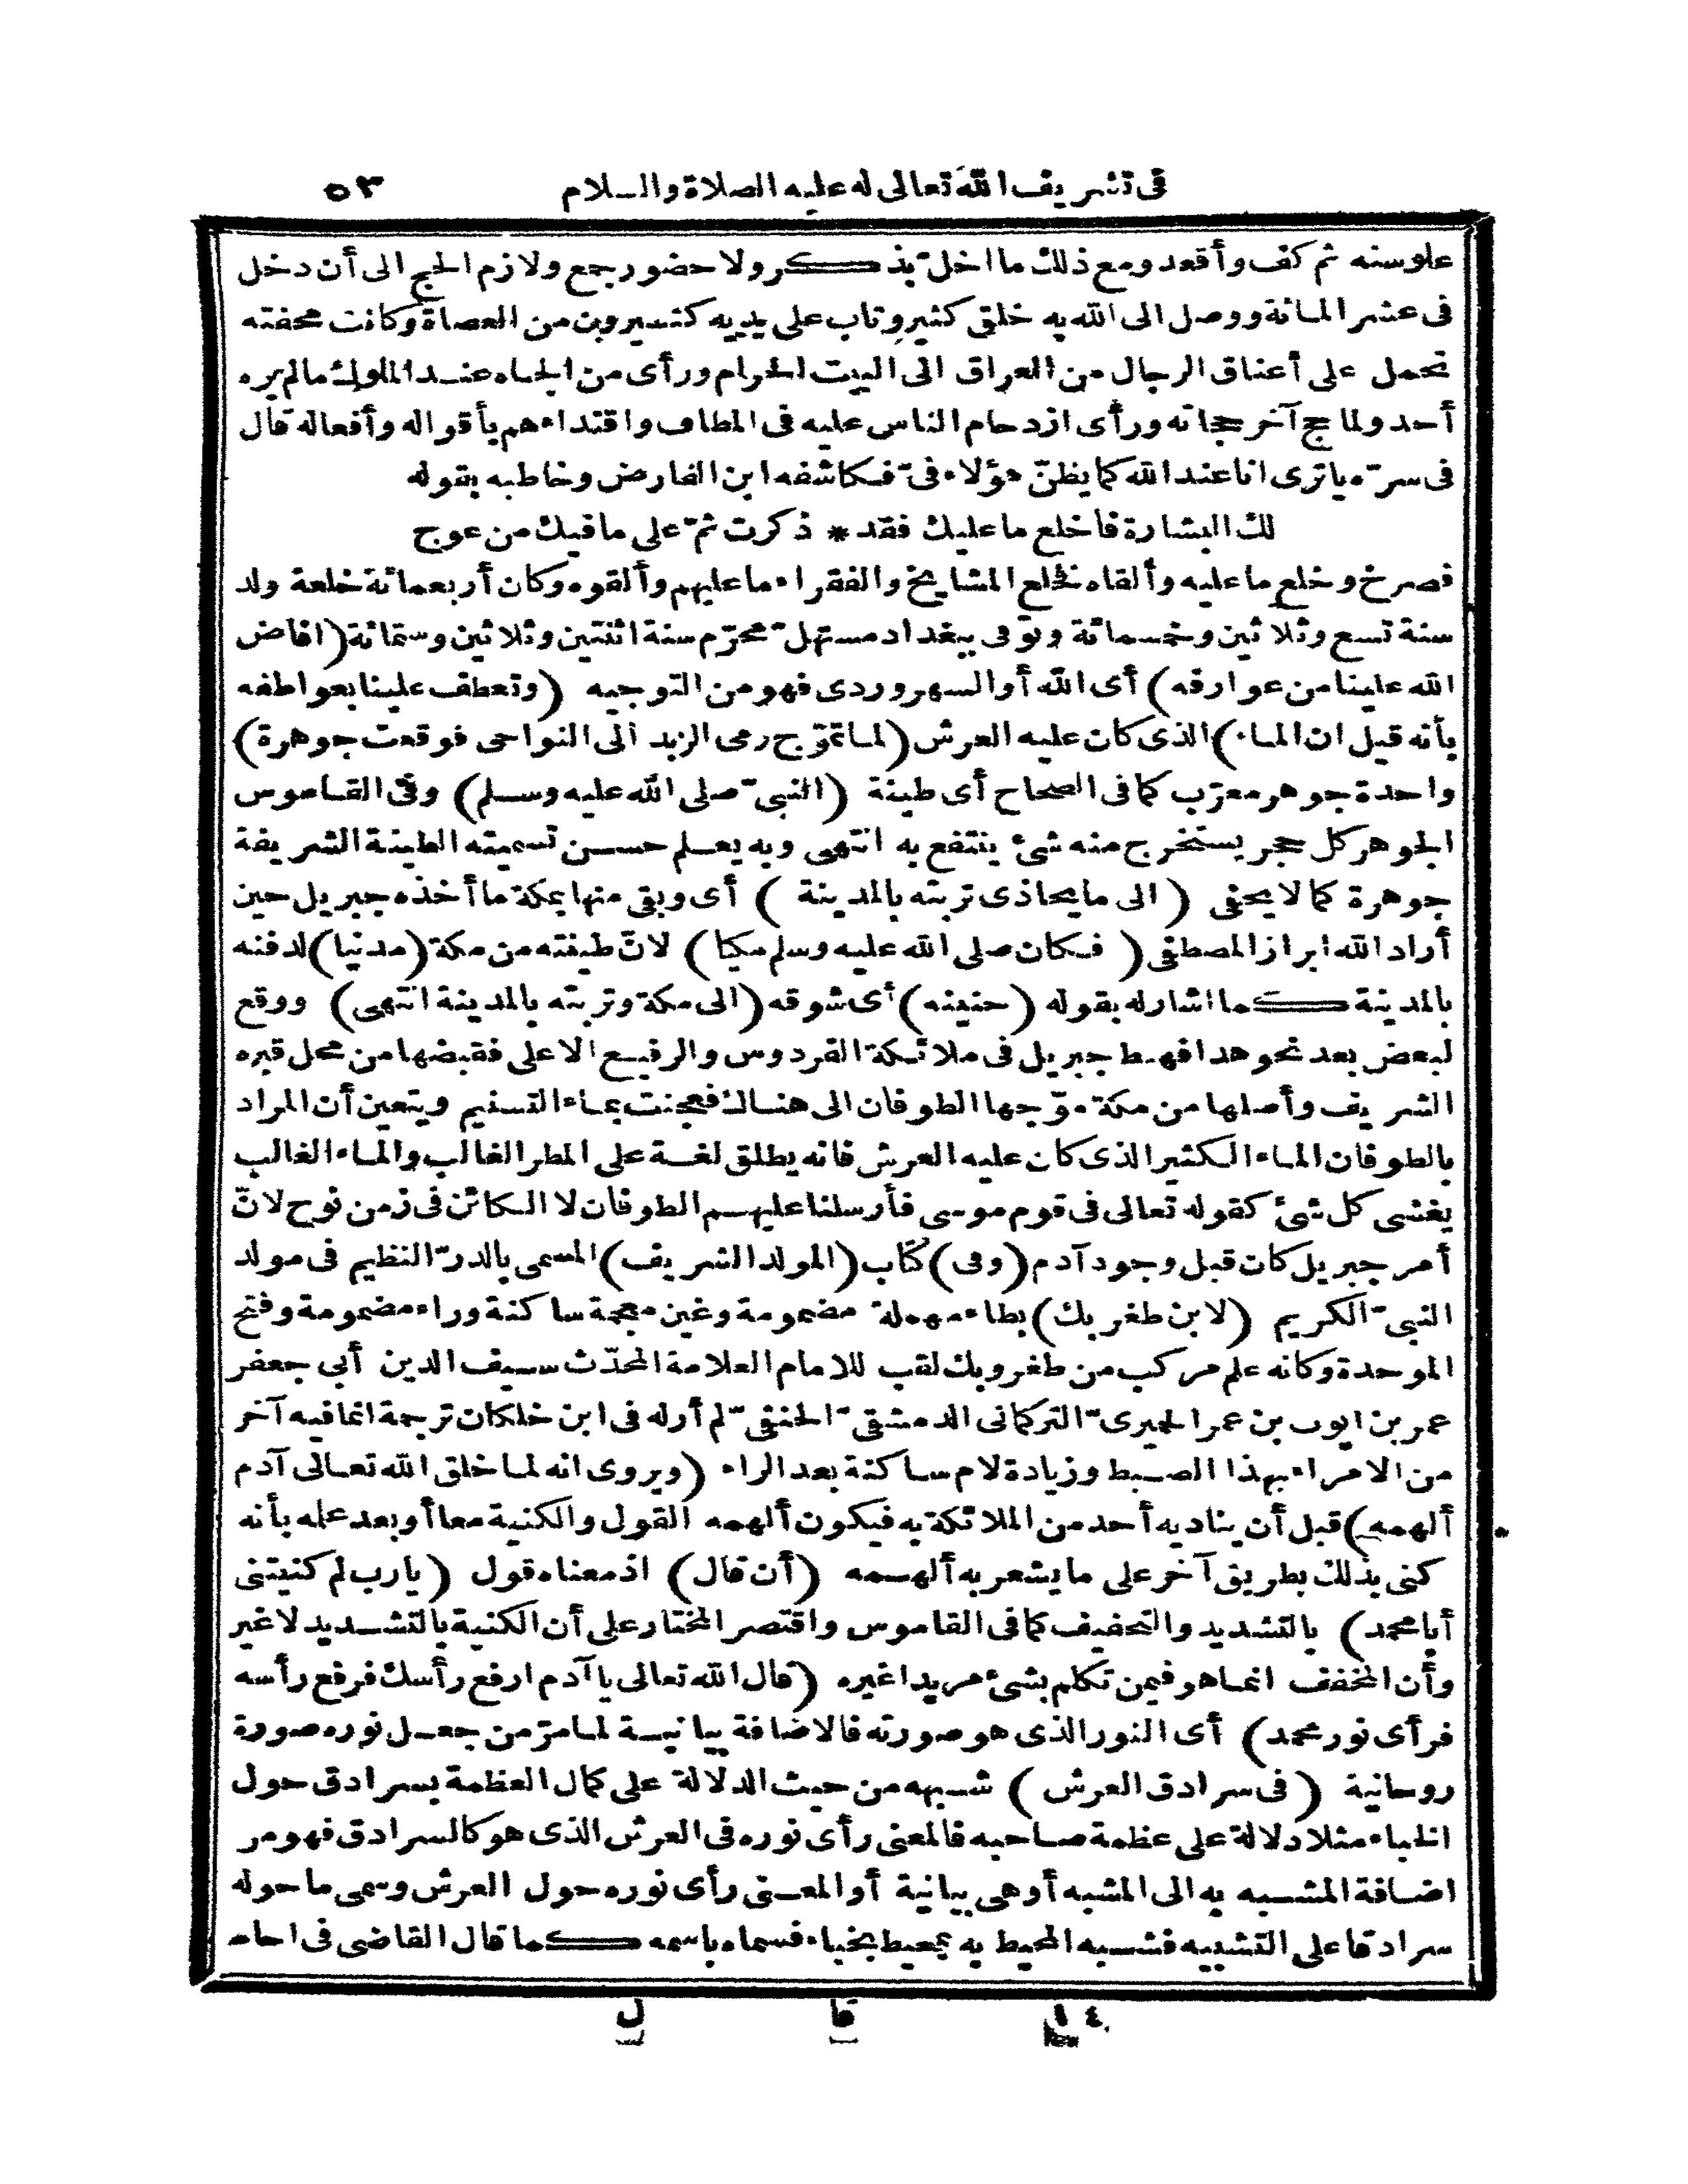 فى تشريف الله تعالى له عليه الصلاة والسلام ٥٣
علو سنه ثم كف وأقعد ومع ذلك ما اخل بذكر ولا حضور جمع ولازم الحج الى أن دخل
فى عشر المائة ووصل الى الله به خلق كثير وتاب على يديه كثيرون من العصاة وكانت محفته
تحمل على أعناق الرجال من العراق الى البيت الحرام ورأى من الجاه عند الملوك ما لم يره
أحد ولما حج آخر حجاته ورأى ازدحام الناس عليه فى المطاف واقتداءهم بأقواله وأفعاله قال
فى سرّه ياترى انا عند الله كما يظنّ هؤلاء فىّ فكاشفه ابن الفارض وخاطبه بقوله
لك البشارة فاخلع ما عليك فقد * ذكرت ثمّ على ما فيك من عوج
فصرخ وخلع ما عليه وألقاه فخلع المشايخ والفقراء ما عليهم وألقوه وكان أربعمائة خلعة ولد
سنة تسع وثلاثين وخمسمائة وتوفى ببغداد مستهلّ محرّم سنة اثنتين وثلاثين وستمائة (افاض
الله علينا من عوارفه) أى الله أو السهروردى فهو من التوجيه (وتعطف علينا بعواطفه
بأنه قيل ان الماء) الذى كان عليه العرش (لما تموّج رمى الزبد الى النواحى فوقعت جوهرة)
واحدة جوهر معرّب كما فى الصحاح أى طينة (النبىّ صلى الله عليه وسلم) وفى القاموس
الجوهر كل حجر يستخرج منه شئ ينتفع به انتهى وبه يعلم حسن تسميته الطينة الشريفة
جوهرة كما لا يخفى (الى ما يحاذى تربته بالمدينة) أى وبقى منها بمكة ما أخذه جبريل حين
أراد الله ابراز المصطفى (فكان صلى الله عليه وسلم مكيا) لانّ طينته من مكة (مدنيا) لدفنه
بالمدينة كما اشار له بقوله (حنينه) أى شوقه (الى مكة وتربته بالمدينة انتهى) ووقع
لبعض بعد نحو هذا فهبط جبريل فى ملائكة الفردوس والرفيع الاعلى فقبضها من محل قبره
الشريف وأصلها من مكة موّجها الطوفان الى هناك فعجنت بماء التسنيم ويتعين أن المراد
بالطوفان الماء الكثير الذى كان عليه العرش فانه يطلق لغة على المطر الغالب والماء الغالب
يغشى كل شئ كقوله تعالى فى قوم موسى فأرسلنا عليهم الطوفان لا الكائن فى زمن نوح لانّ
أمر جبريل كان قبل وجود آدم (وفى) كتاب (المولد الشريف) المسمى بالدرّ النظيم فى مولد
النبىّ الكريم (لابن طغربك) بطاء مهملة مضمومة وغين معجمة ساكنة وراء مضمومة وفتح
الموحدة وكانه علم مركب من طغر وبك لقب للامام العلامة المحدّث سيف الدين أبي جعفر
عمر بن ايوب بن عمر الحميرىّ التركمانى الدمشقىّ الحنفىّ لم أر له فى ابن خلكان ترجمة انما فيه آخر
من الامراء بهذا الضبط وزيادة لام ساكنة بعد الراء (ويروى انه لما خلق الله تعالى آدم
ألهمه) قبل أن يناديه أحد من الملائكة به فيكون ألهمه القول والكنية معا أو بعد علمه بأنه
كنى بذلك بطريق آخر على ما يشعر به ألهمه (أن قال) اذ معناه قول (يارب لم كنيتنى
أبا محمد) بالتشديد والتخفيف كما فى القاموس واقتصر المختار على أن الكنية بالتشديد لا غير
وأن المخفف انما هو فيمن تكلم بشئ مريدا غيره (قال الله تعالى يا آدم ارفع رأسك فرفع رأسه
فرأى نور محمد) أى النور الذى هو صورته فالاضافة بيانية لما مرّ من جعل نوره صورة
روحانية (فى سرادق العرش) شبهه من حيث الدلالة على كمال العظمة بسرادق حول
الخباء مثلا دلالة على عظمة صاحبه فالمعنى رأى نوره فى العرش الذى هو كالسرادق فهو من
اضافة المشبه به الى المشبه أو هى بيانية أو المعنى رأى نوره حول العرش وسمى ما حوله
سرادقا على التشبيه فشبه المحيط به بمحيط بخباء فسماه باسمه كما قال القاضى فى احاط
١٤ قا ل